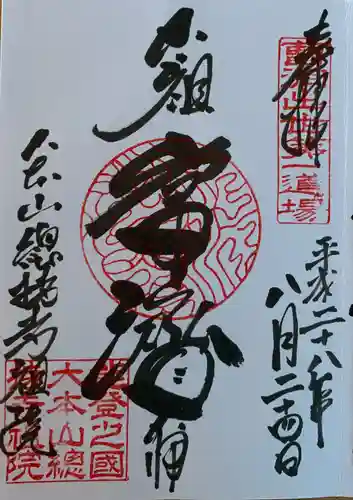 奉拝
道場
平成二十八年
八月二十四日
太祖
常濟大師
大本山總持寺祖院
能登之國
大本山總
持寺祖院